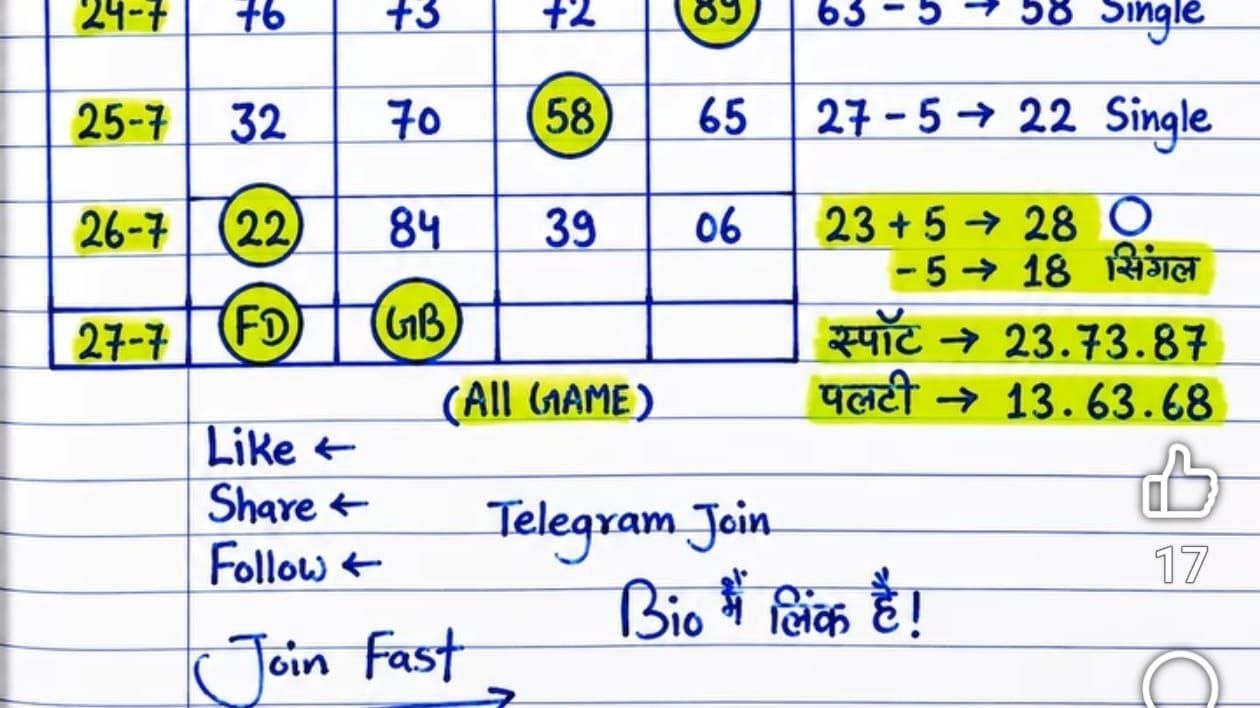 24-7 76 73 72 89 63 - 5 → 58 Single
25-7 32 70 58 65 27 - 5 → 22 Single
26-7 22 84 39 06 23 + 5 → 28 O
- 5 → 18 सिंगल
27-7 FD GB स्पॉट → 23.73.87
पलटी → 13.63.68
(All GAME)
Like ←
Share ←
Telegram Join
Follow ←
Bio में लिंक है!
Join Fast
17